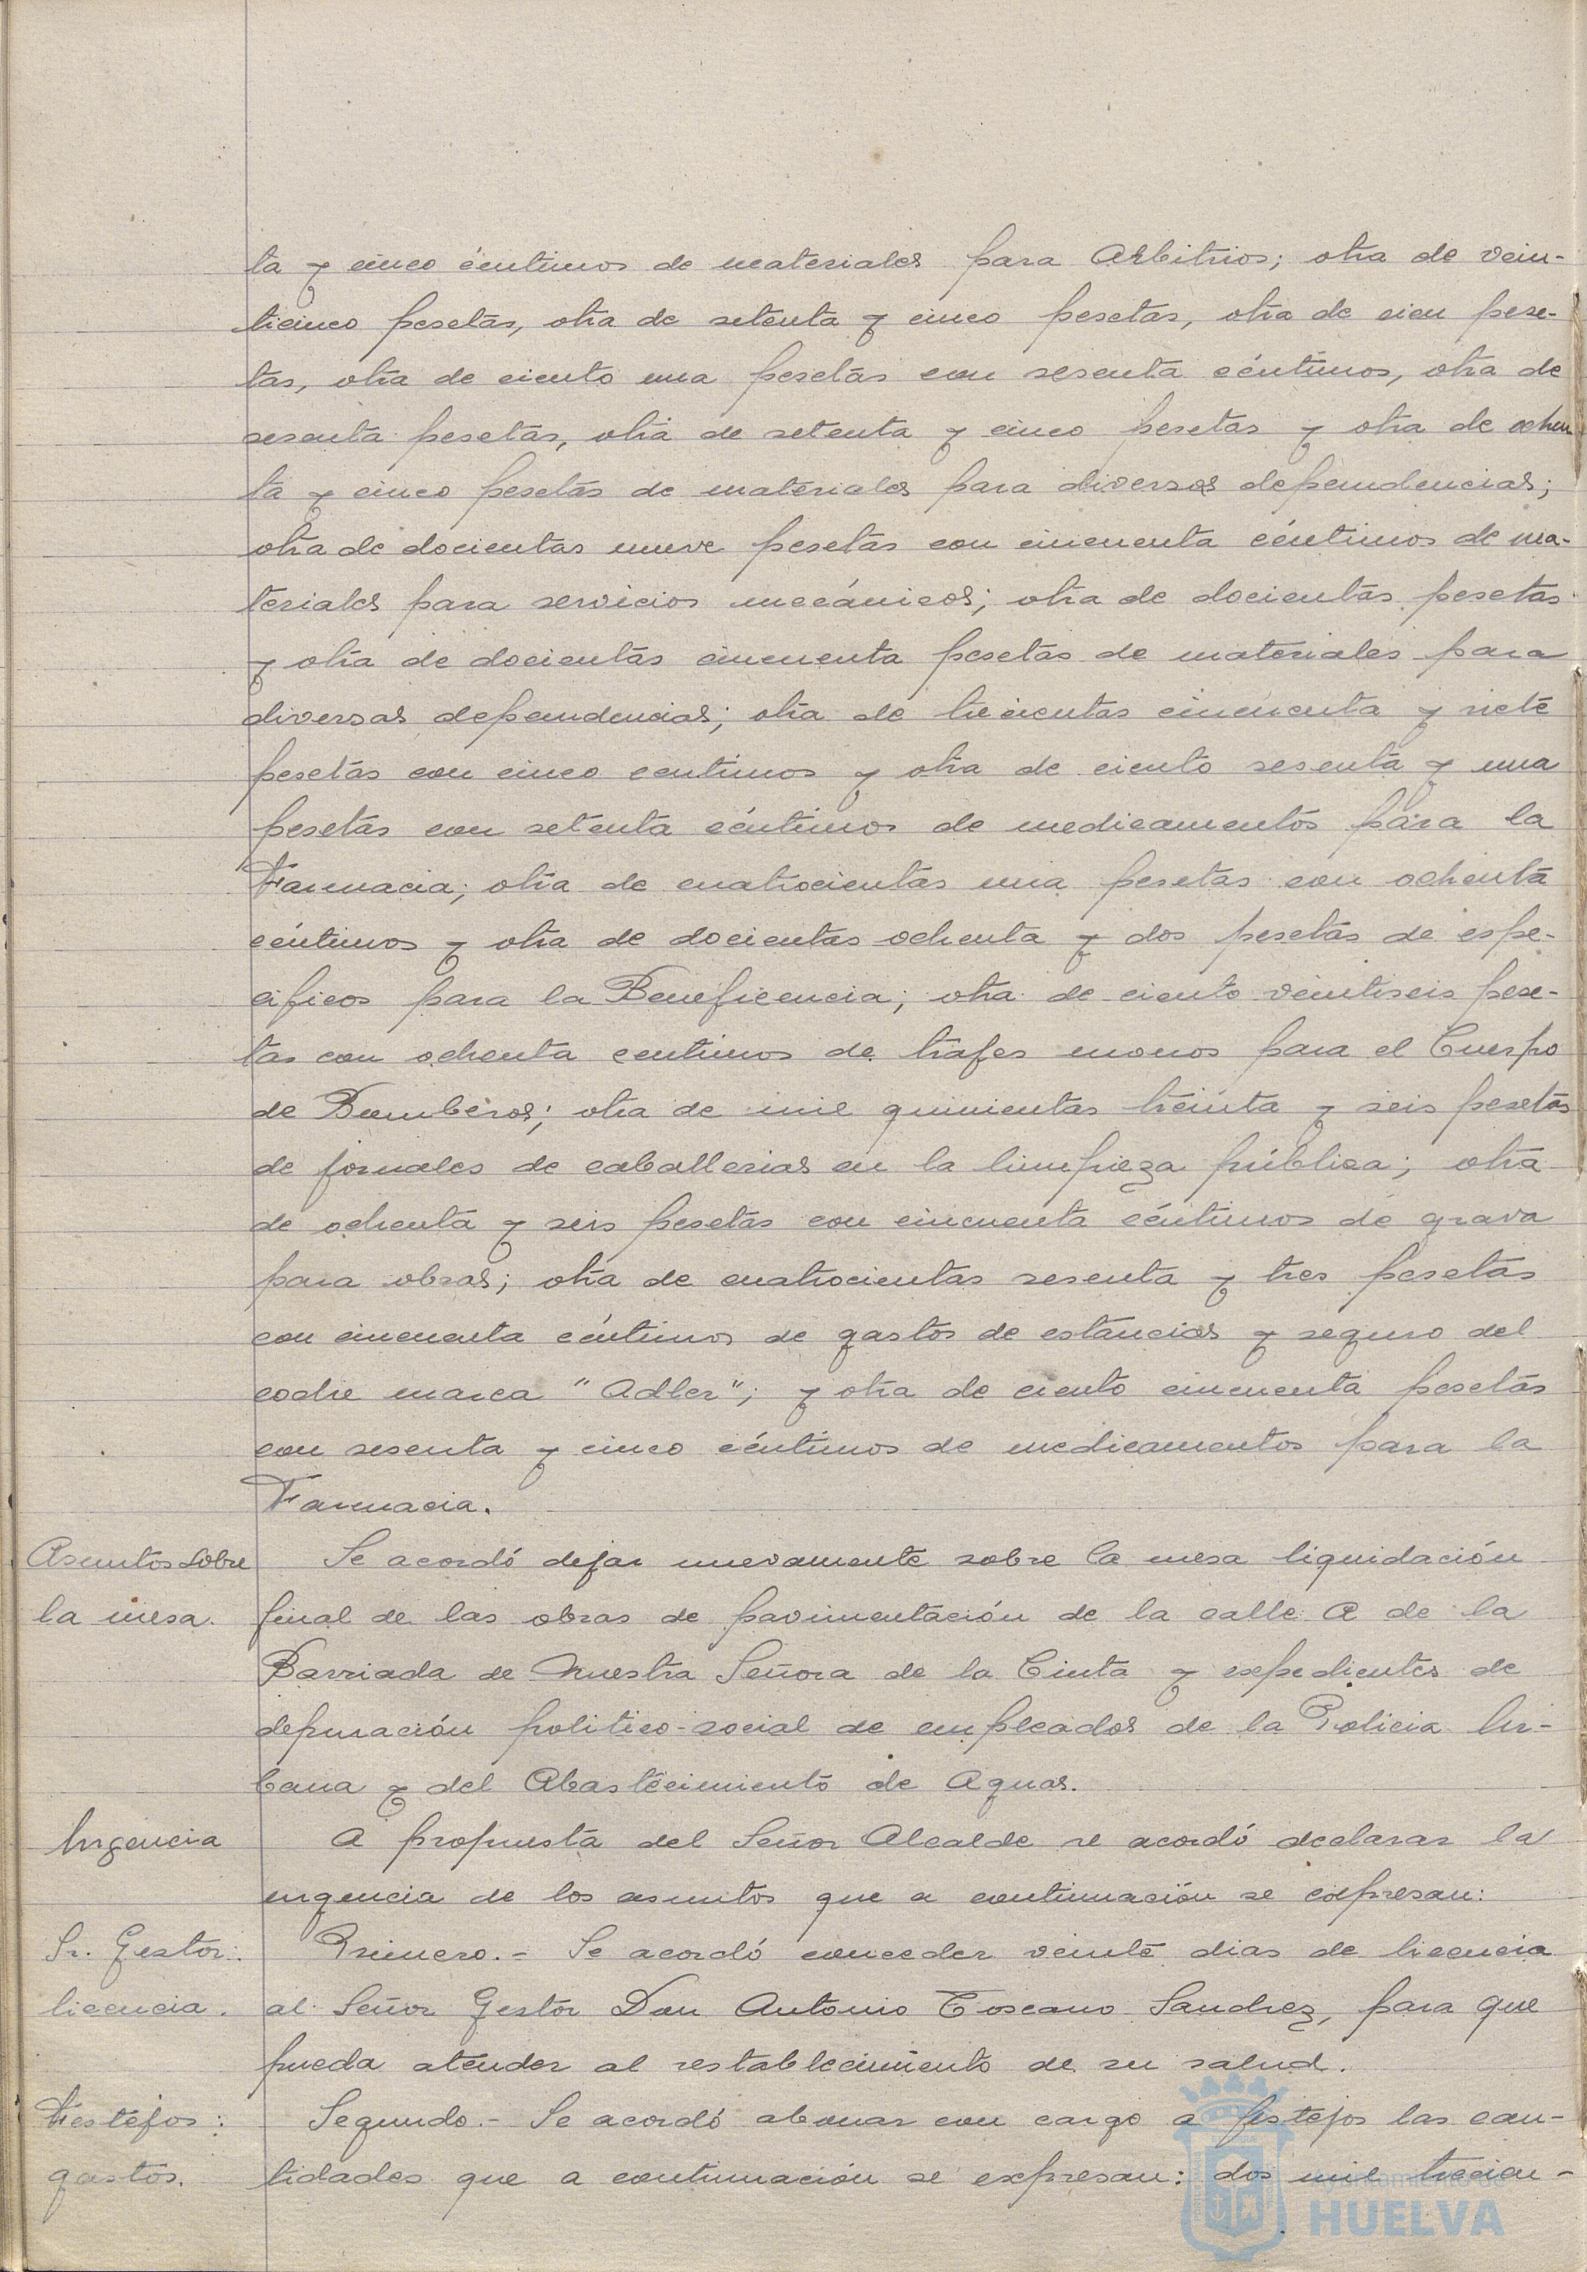 ta y cinco céntimos de materiales para Arbitrios; otra de vein-
ticinco pesetas, otra de setenta y cinco pesetas, otra de cien pese-
tas, otra de ciento una pesetas con sesenta céntimos, otra de
sesenta pesetas, otra de setenta y cinco pesetas y otra de ochen
ta y cinco pesetas de materiales para diversas dependencias;
otra de docientas nueve pesetas con cincuenta céntimos de ma-
teriales para servicios mecánicos; otra de docientas pesetas
y otra de docientas cincuenta pesetas de materiales para
diversas dependencias; otra de trecientas cincuenta y siete
pesetas con cinco centimos y otra de ciento sesenta y una
pesetas con setenta céntimos de medicamentos para la
Farmacia; otra de cuatrocientas una pesetas con ochenta
céntimos y otra de docientas ochenta y dos pesetas de espe-
cificos para la Beneficencia; otra de ciento veintiseis pese-
tas con ochenta centimos de trajes monos para el Cuerpo
de Bomberos; otra de mil quinientas treinta y seis pesetas
de jornales de caballerias en la limpieza pública; otra
de ochenta y seis pesetas con cincuenta céntimos de grava
para obras; otra de cuatrocientas sesenta y tres pesetas
con cincuenta céntimos de gastos de estancias y seguro del
coche marca "Adler"; y otra de ciento cincuenta pesetas
con sesenta y cinco céntimos de medicamentos para la
Farmacia.
Asuntos sobre
la mesa.
Se acordó dejar nuevamente sobre la mesa liquidación
final de las obras de pavimentación de la calle A de la
Barriada de Nuestra Señora de la Cinta y expedientes de
depuración politico-social de empleados de la Policia Ur-
bana y del Abastecimiento de Aguas.
Urgencia
A propuesta del Señor Alcalde se acordó declarar la
urgencia de los asuntos que a continuación se expresan:
Sr. Gestor:
licencia.
Primero.- Se acordó conceder veinte dias de licencia
al Señor Gestor Don Antonio Toscano Sanchez, para que
pueda atender al restablecimiento de su salud.
Festejos:
gastos.
Segundo.- Se acordó abonar con cargo a festejos las can-
tidades que a continuación se expresan: dos mil trecien-
Ayuntamiento de
HUELVA